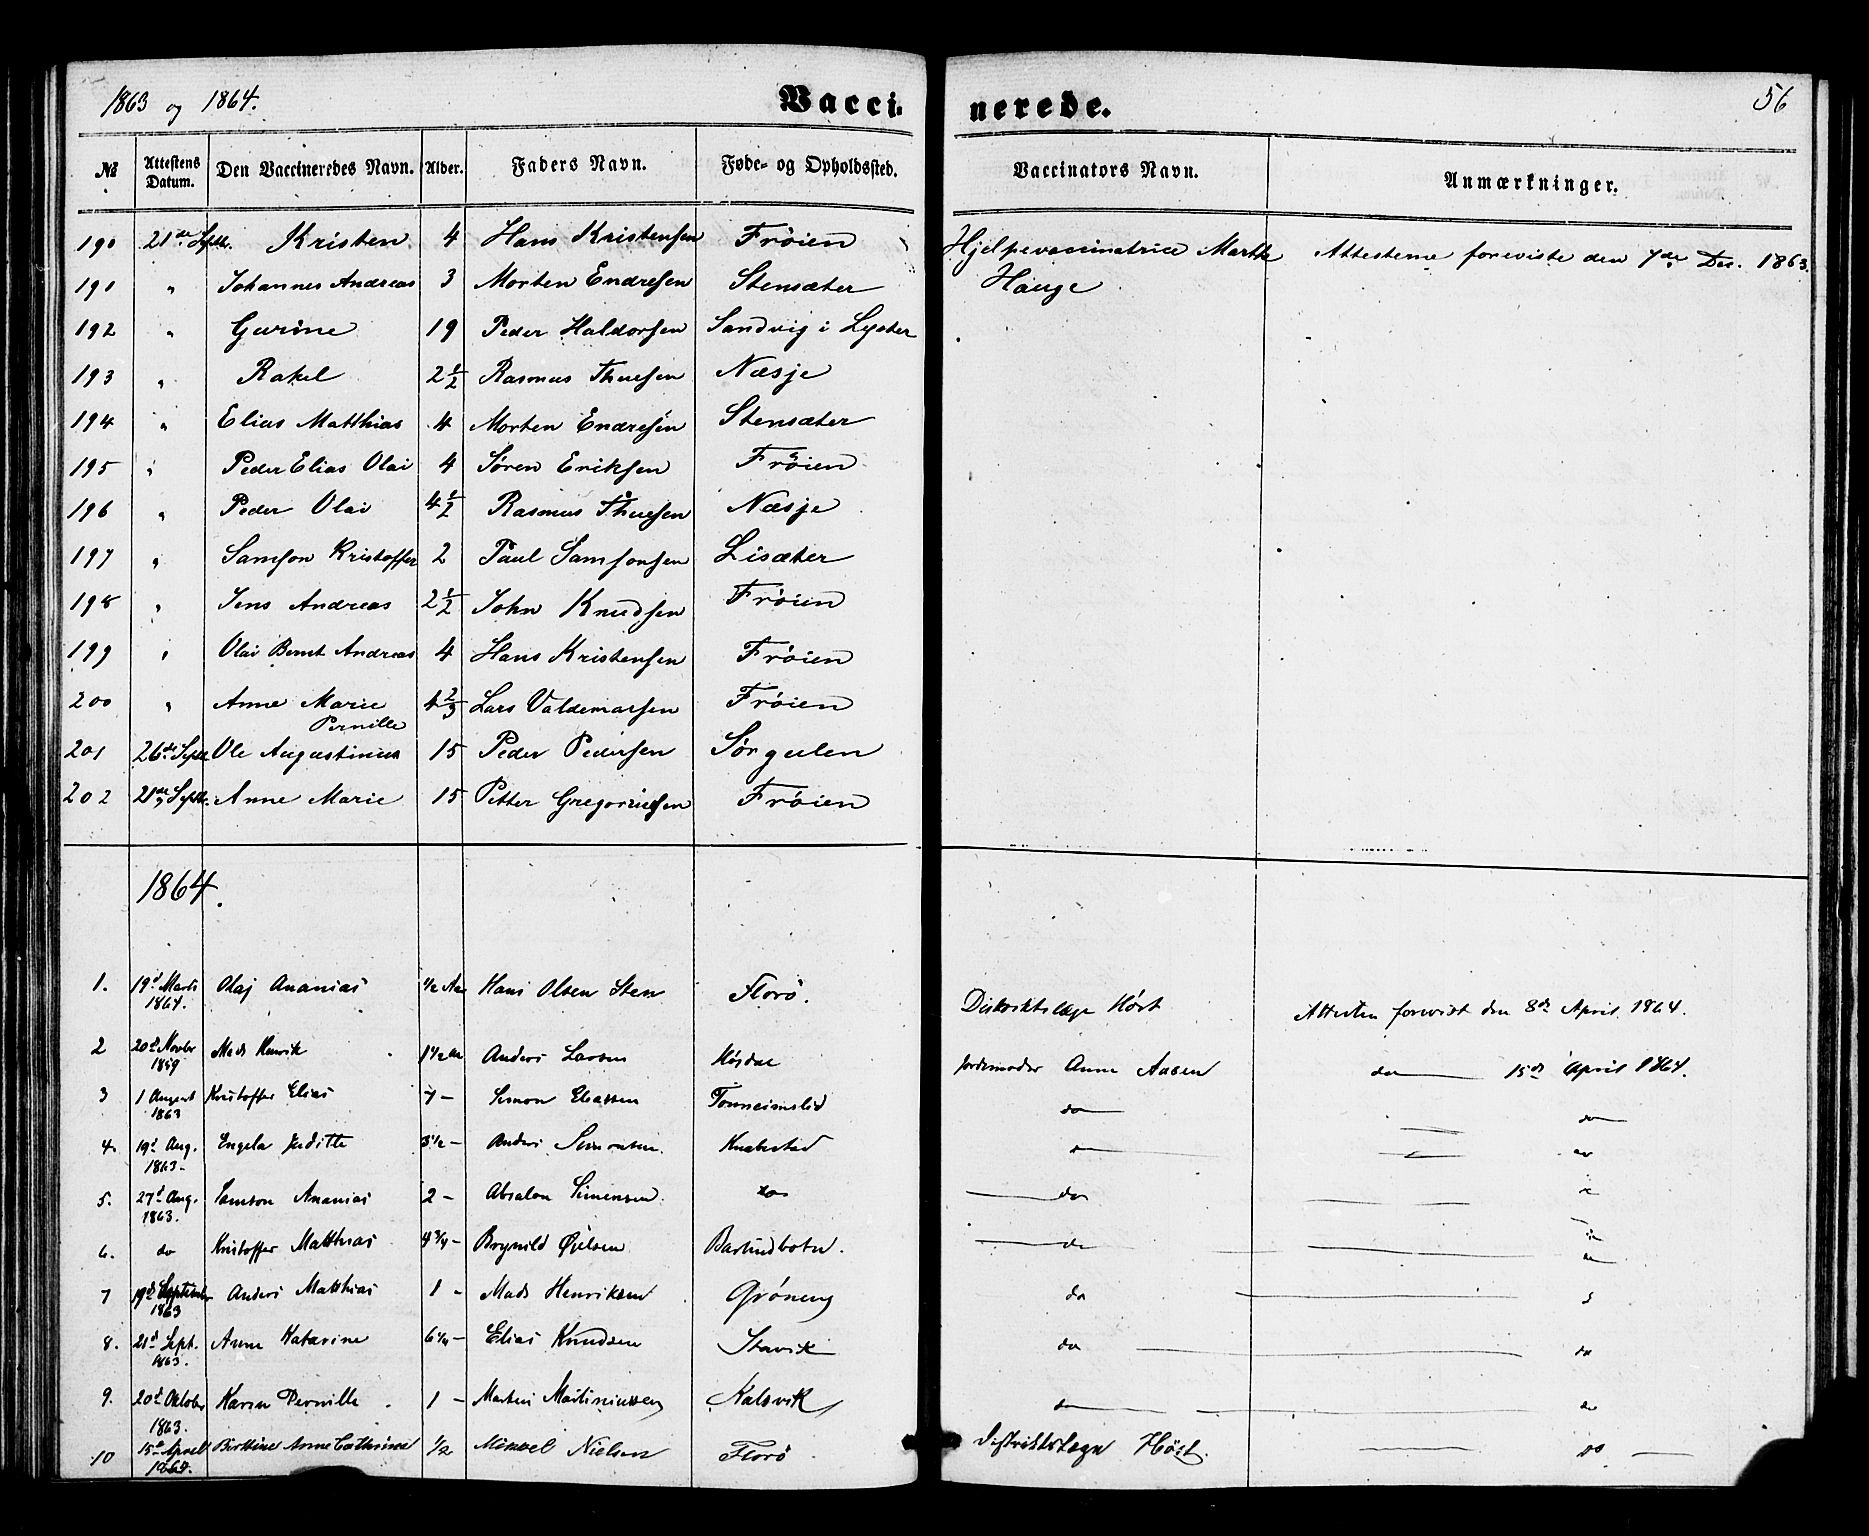 1863 og 1864.
Vaccinerede.
56
No
Attestens Datum.
Den Vaccineredes Navn.
Alder.
Faders Navn.
Føde- og Opholdssted.
Vaccinators Navn.
Anmærkninger.
190 21de Septr. Kristen 4 Hans Kristensen Frøien Hjelpevaccinatrice Marthe Hauge Attesterne foreviste den 7de Dec. 1863.
191 " Johannes Andreas 3 Morten Endresen Stensæter
192 " Gurine 19 Peder Haldorsen Sandvig i Lyster
193 " Rakel 2 1/2 Rasmus Thuesen Næsje
194 " Elias Matthias 4 Morten Endresen Stensæter
195 " Peder Elias Olai 4 Søren Eriksen Frøien
196 " Peder Olai 4 1/2 Rasmus Thuesen Næsje
197 " Samson Kristoffer 2 Paul Samsonsen Lisæter
198 " Jens Andreas 2 1/2 John Knudsen Frøien
199 " Olai Bernt Andreas 4 Hans Kristensen Frøien
200 " Anne Marie Pernille 4 2/3 Lars Valdemarsen Frøien
201 26de Septr Ole Augustinus 15 Peder Pedersen Sørgulen
202 21de Septr. Anne Marie 15 Petter Gregoriusen Frøien
1864.
1. 19d Marts 1864. Olaj Ananias 1/2 Aar Hans Olsen Sten Florø. Distriktslæge Høst Attesten forevist den 8de April 1864.
2 20d Novbr 1859 Mads Henrik 1 1/2 Aar Anders Larsen Jordemoder Anne Aasen do 15de April 1864.
3 1 August 1863 Kristoffer Elias 7 - Simon Eliassen Tonheimslid do do
4. 19d Aug. 1863 - Engela Juditte 3 1/2 - Anders Simonsen Knapstad do do
5. 27d Aug. 1863. Samson Ananias 2 - Absalon Simensen do do
6. do Kristoffer Matthias 4 3/4 - Brynild Barlindbotn. do
7 19d September 1863 Anders Matthias 1 - Mads Henriksen Grøneng do
8. 21d Sept. 1863. Anne Katarine 6 1/4 - Elias Knudsen Stavik do do
9. 20d Oktober 1863. Karen Pernille 1 - Martin Martiniussen Kalsvik do do
10 15d April 1864. Birthine Anne Cathrine 1/2 Mikael Nielsen Florø Distriktslæge Høst. do